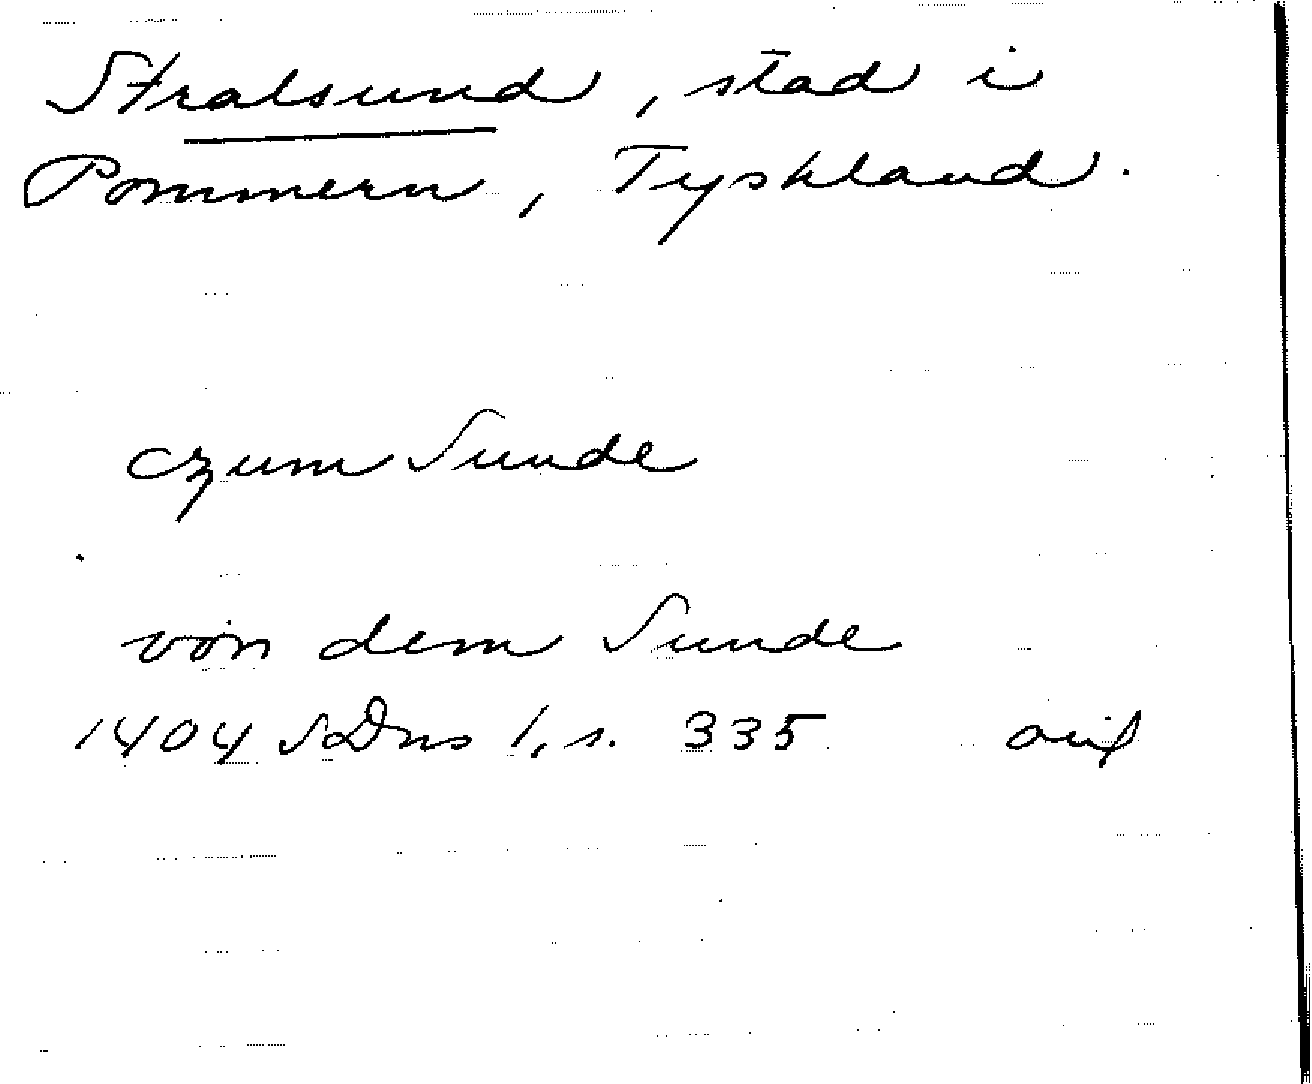 Stralsund, stad i
Pommern, Tyskland.
czum Sunde
von dem Sunde
1404 SDns 1, s. 335